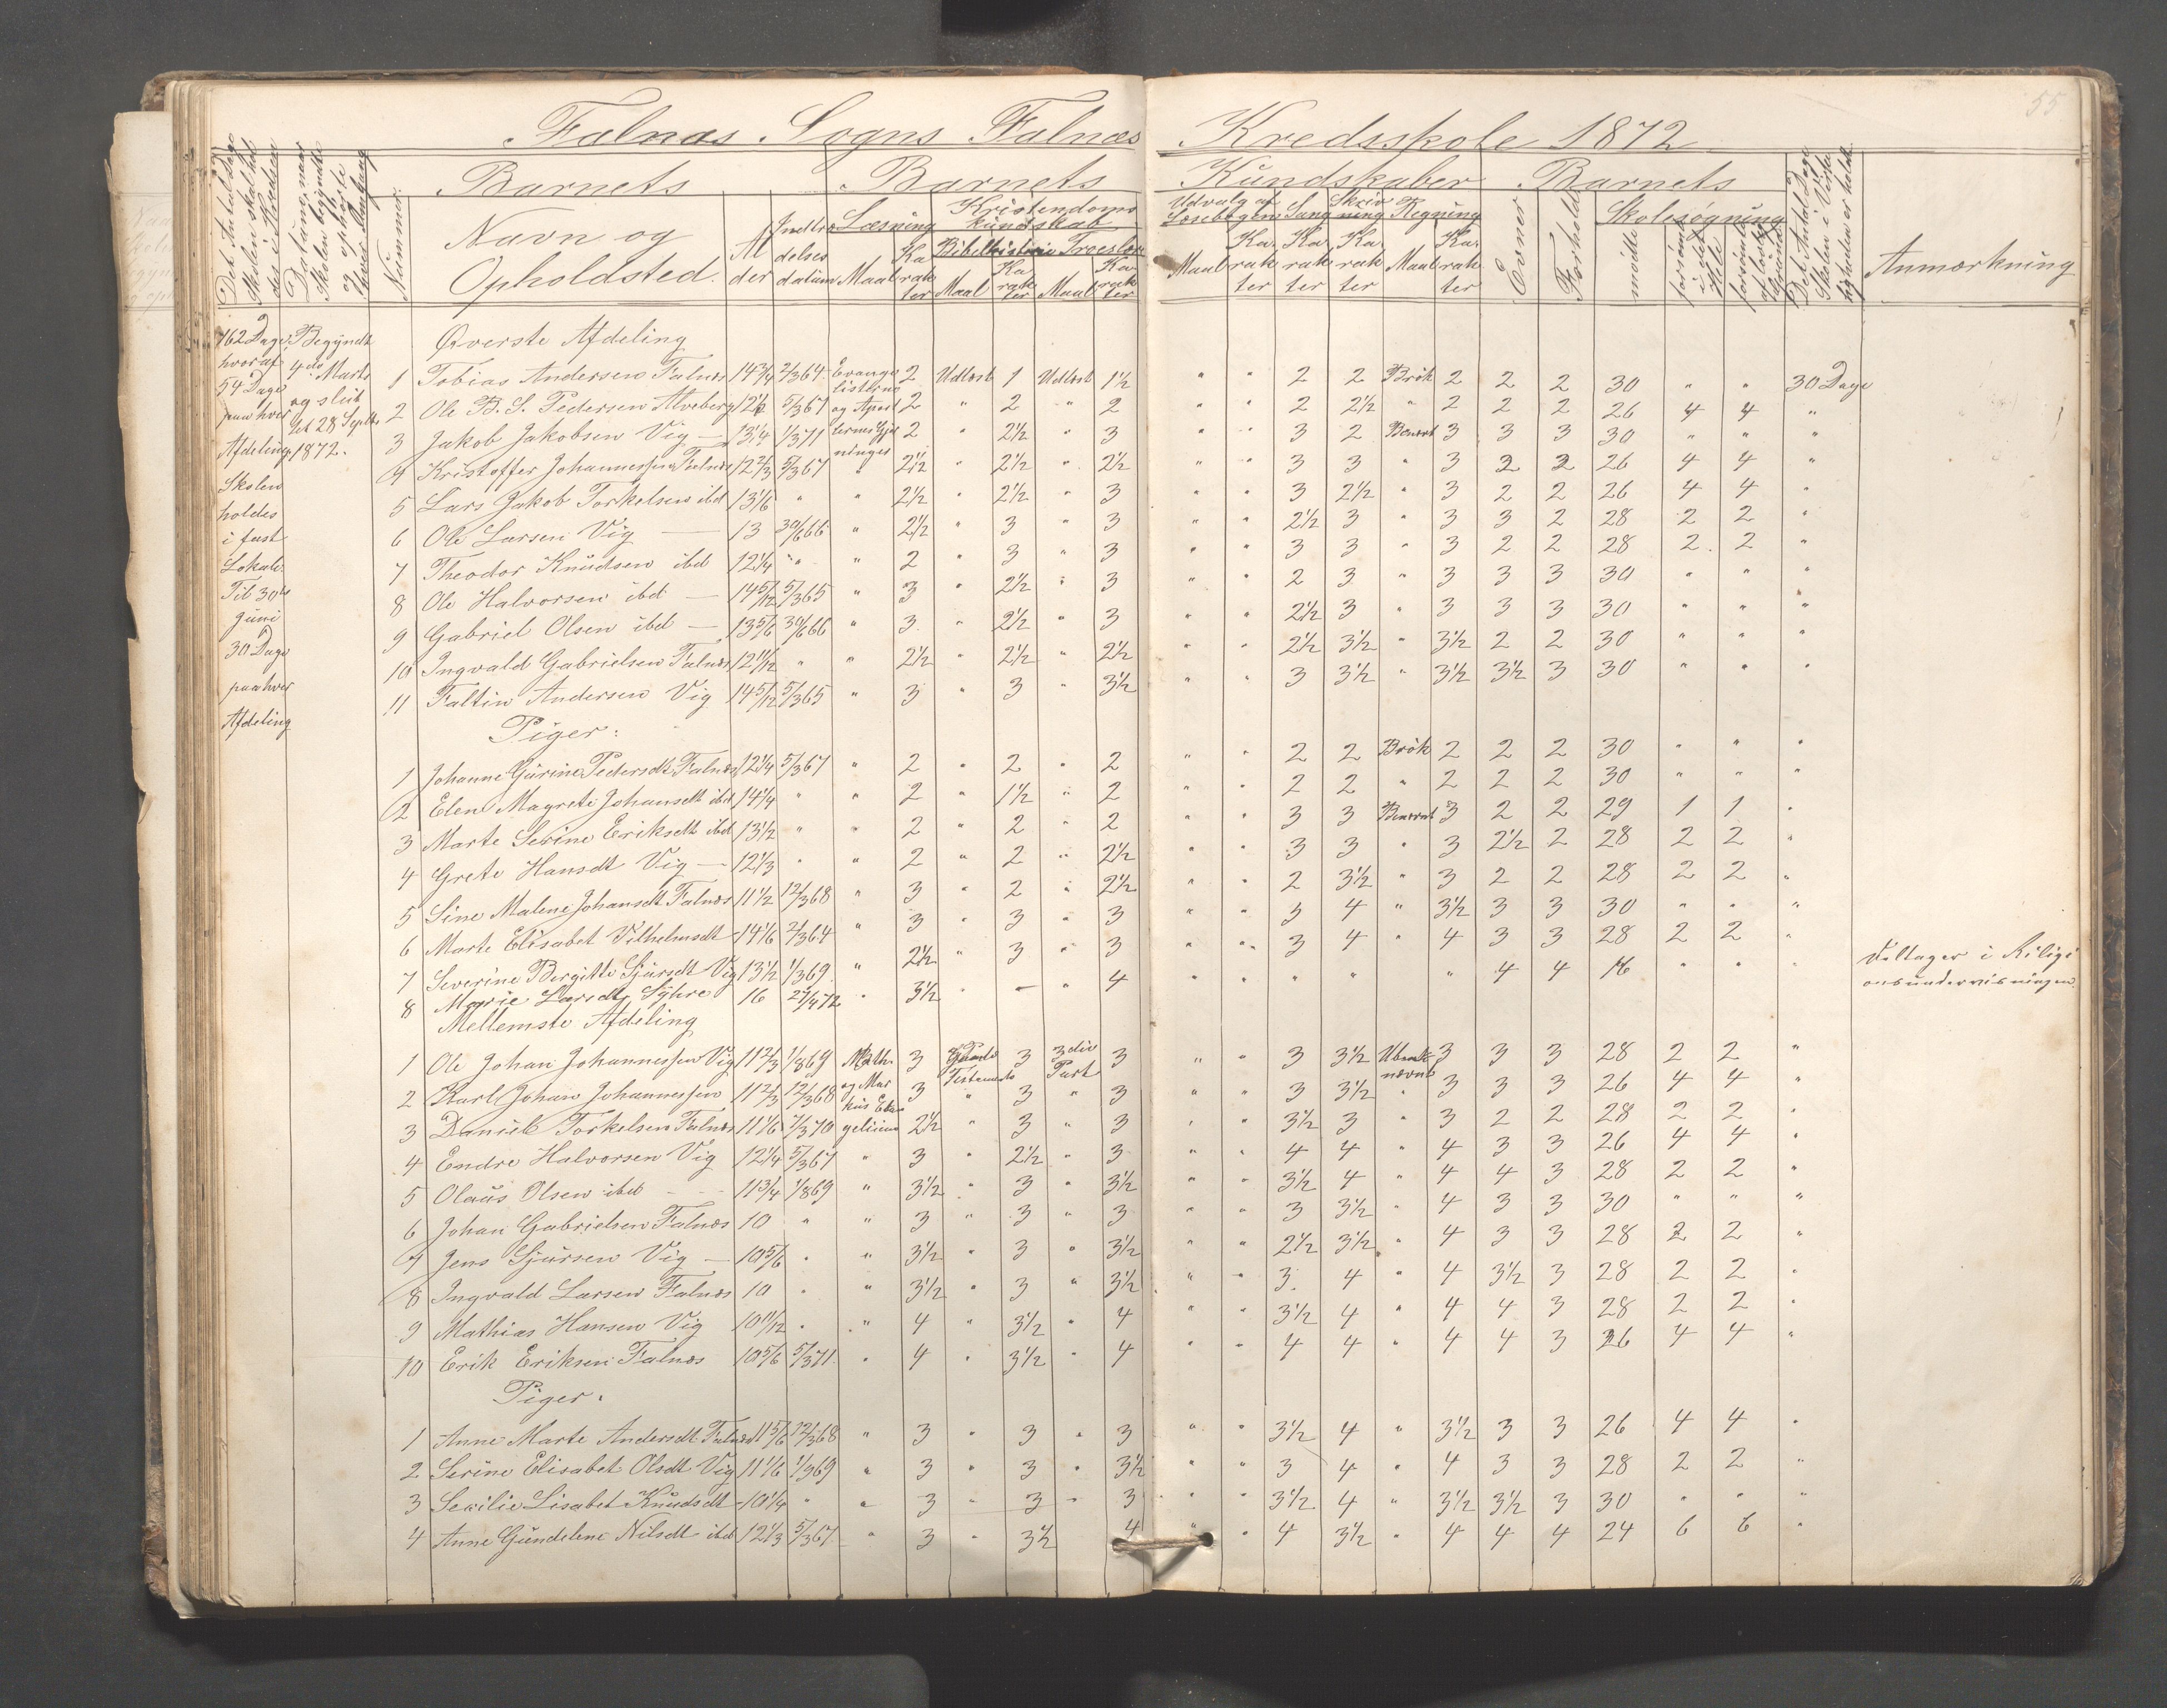 55
Falnæs Sogns Falnæs Kredsskole 1872
Barnets Barnets Kundskaber Barnets
Det Antal Dage Skolen skal holdes i Kredsen
Datum, naar Skolen begyndte og ophørte
Nummer
Navn og Opholdsted.
Alder
Indtrædelses datum
Læsning Maal Karakter
Kristendoms kundskab
Bibelhistorie Maal Karakter
Troeslære Maal Karakter
Udvalg af Læsebogen Maal Karakter
Sang Karakter
Skrivning Karakter
Regning Maal Karakter
Evner
Forhold
Skolesøgning
mødte
forsømte i det Hele
forsømte af lovlig Grund
Det Antal Dage Skolen i Virkeligheden er holdt
Anmærkning
162 Dage hvoraf 54 Dage paa hver Afdeling. Skolen holdes i fast Lokale. Til 30te Juni 30 Dage paa hver Afdeling
Begyndt 4de Marts og slut. det 28 Septbr 1872.
Øverste Afdeling
1 Tobias Andersen Falnæs 14 3/4 2/3 64 Evangelisterne 2 Udlæst 1 Udlæst 1½ " " 2 2 Brøk 2 2 2 30 " " 30 Dage
2 Ole B. S. Pedersen Alveberg 12½ 5/3 67 og Apost 2 " 2 " 2 " " 2 2½ " 2 2 2 26 4 4 "
3 Jakob Jakobsen Vig — 13¼ 1/3 71 lernes Gjerninger 2 " 2½ " 3 " " 3 2 Benævnt 3 3 3 30 " " "
4 Kristoffer Johannessen Falnæs 12 2/3 5/3 67 " 2½ " 2½ " 2½ " " 3 3 " 3 2 2 26 4 4 "
5 Lars Jakob Torkelsen ibd 13 1/6 " " 2½ " 2½ " 3 " " 3 2½ " 3 2 2 26 4 4 "
6 Ole Larsen Vig — 13 30/6 66 " 2½ " 3 " 3 " " 2½ 3 " 3 3 2 28 2 2 "
7 Theodor Knudsen ibd 12¼ " " 2 " 3 " 3 " " 3 3 " 3 2 2 28 2. 2 "
8 Ole Halvorsen ibd — 14 5/12 5/3 65 " 3 " 2½ " 3 " " 2 3 " 3 3 3 30 " " "
9 Gabriel Olsen ibd — 13 5/6 30/6 66 " 3 " 2½ " 3 " " 2½ 3 " 3 3 3 30 " " "
10 Ingvald Gabrielsen Falnæs 12 11/12 " " 2½ " 2½ " 2½ " " 2½ 3½ " 3½ 2 2 30 " " "
11 Faltin Andersen Vig 14 5/12 5/3 65 " 3 " 3 " 3½ " " 3 3½ " 3½ 3½ 3 30 " " "
Piger:
1 Johanne Gurine Pedersdt Falnæs 12¼ 5/3 67 " 2 " 2 " 2 " " 2 2 Brøk 2 2 2 30 " " "
2 Elen Magrete Johansdt ibd 14¼ " " 2 " 1½ " 2 " " 2 2 " 2 2 2 30 " " "
3 Marte Serine Eriksdt ibd 13½ " " 2 " 2 " 2 " " 3 3 Benævnt 3 2 2 29 1 1 "
4 Grete Hansdt Vig — 12 1/3 " " 2 " 2 " 2½ " " 3 3 " 3 2½ 2 28 2 2 "
5 Sine Malene Johansdt Falnæs 11½ 12/3 68 " 3 " 2 " 2½ " " 2 3½ " 3 2 2 28 2 2 "
6 Marte Elisabet Vilhelmsdt 14 1/6 2/3 64 " 3 " 3 " 3 " " 3 4 " 3½ 3 3 30 " " "
7 Severine Birgitte Sjursdt Vig 13½ 1/3 69 " 2½ " 3 " 3 " " 3 4 " 4 3 3 28 2 2 "
8 Marie Larsdt Syhre 16 27/4 72 " 3½ " — " 4 " " " " " 4 4 16 " " " Deltager i Religionsundervisningen.
Mellemste Afdeling
1 Ole Johan Johannessen Vig 11 2/3 1/8 69 Math. 3 Gamle 3 3die 3 " " 3 3½ Ubenævnt 3 3 3 28 2 2 "
2 Karl Johan Johannessen 11 2/3 12/3 68 og Mar 3 Testamente 3 Part 3 " " 3 3½ " 3 3 3 26 4 4 "
3 Daniel Torkelsen Falnæs 11 1/6 1/3 70 kus Evangelium 2½ " 3 " 3 " " 3½ 3 " 3 2 2 28 2 2 "
4 Endre Halvorsen Vig 12¼ 5/3 67 " 3 " 2½ " 3 " " 4 4 " 4 3 3 26 4 4 "
5 Olaus Olsen ibd - - 11¾ 1/8 69 " 3½ " 3 " 3½ " " 3½ 4 " 4 4 3 28 2 2 "
6 Johan Gabrielsen Falnæs 10 " " 3 " 3 " 3 " " 3 3½ " 4 3 3 30 " " "
7 Jens Sjursen Vig — 10 5/6 " " 3½ " 3 " 3½ " " 2½ 3½ " 4 3 3 28 2 2 "
8 Ingvald Larsen Falnæs 10 " " 3½ " 3 " 3½ " " 3. 4 " 4 3½ 3 28 2 2 "
9 Mathias Hansen Vig 10 11/12 " " 4 " 3½ " 4 " " 3½ 4 " 4 4 3 28 2 2 "
10 Erik Eriksen Falnæs 10 5/6 5/3 71. " 4 " 3½ " 4 " " 4 4 " 4 4 3 26 4 4 "
Piger.
1 Anne Marte Andersdt Falnæs 11 5/6 12/3 68 " 3 " 3 " 3 " " 3½ 4 " 3½ 3 3 26 4 4 "
2 Serine Elisabet Olsdt Vig 11 1/6 1/3 69 " 3 " 3 " 3½ " " 3 4 " 4 3 3 28 2 2 "
3 Secilie Lisabet Knudsdt - 10¼ " " 3 " 3 " 3 " " 3½ 4 " 3½ 3½ 3 30 " " "
4 Anne Gundelene Nilsdt ibd 12 1/3 5/3 67 " 3 " 3½ 4 " " 4 3½ " 4 4 4 24 6 6 "